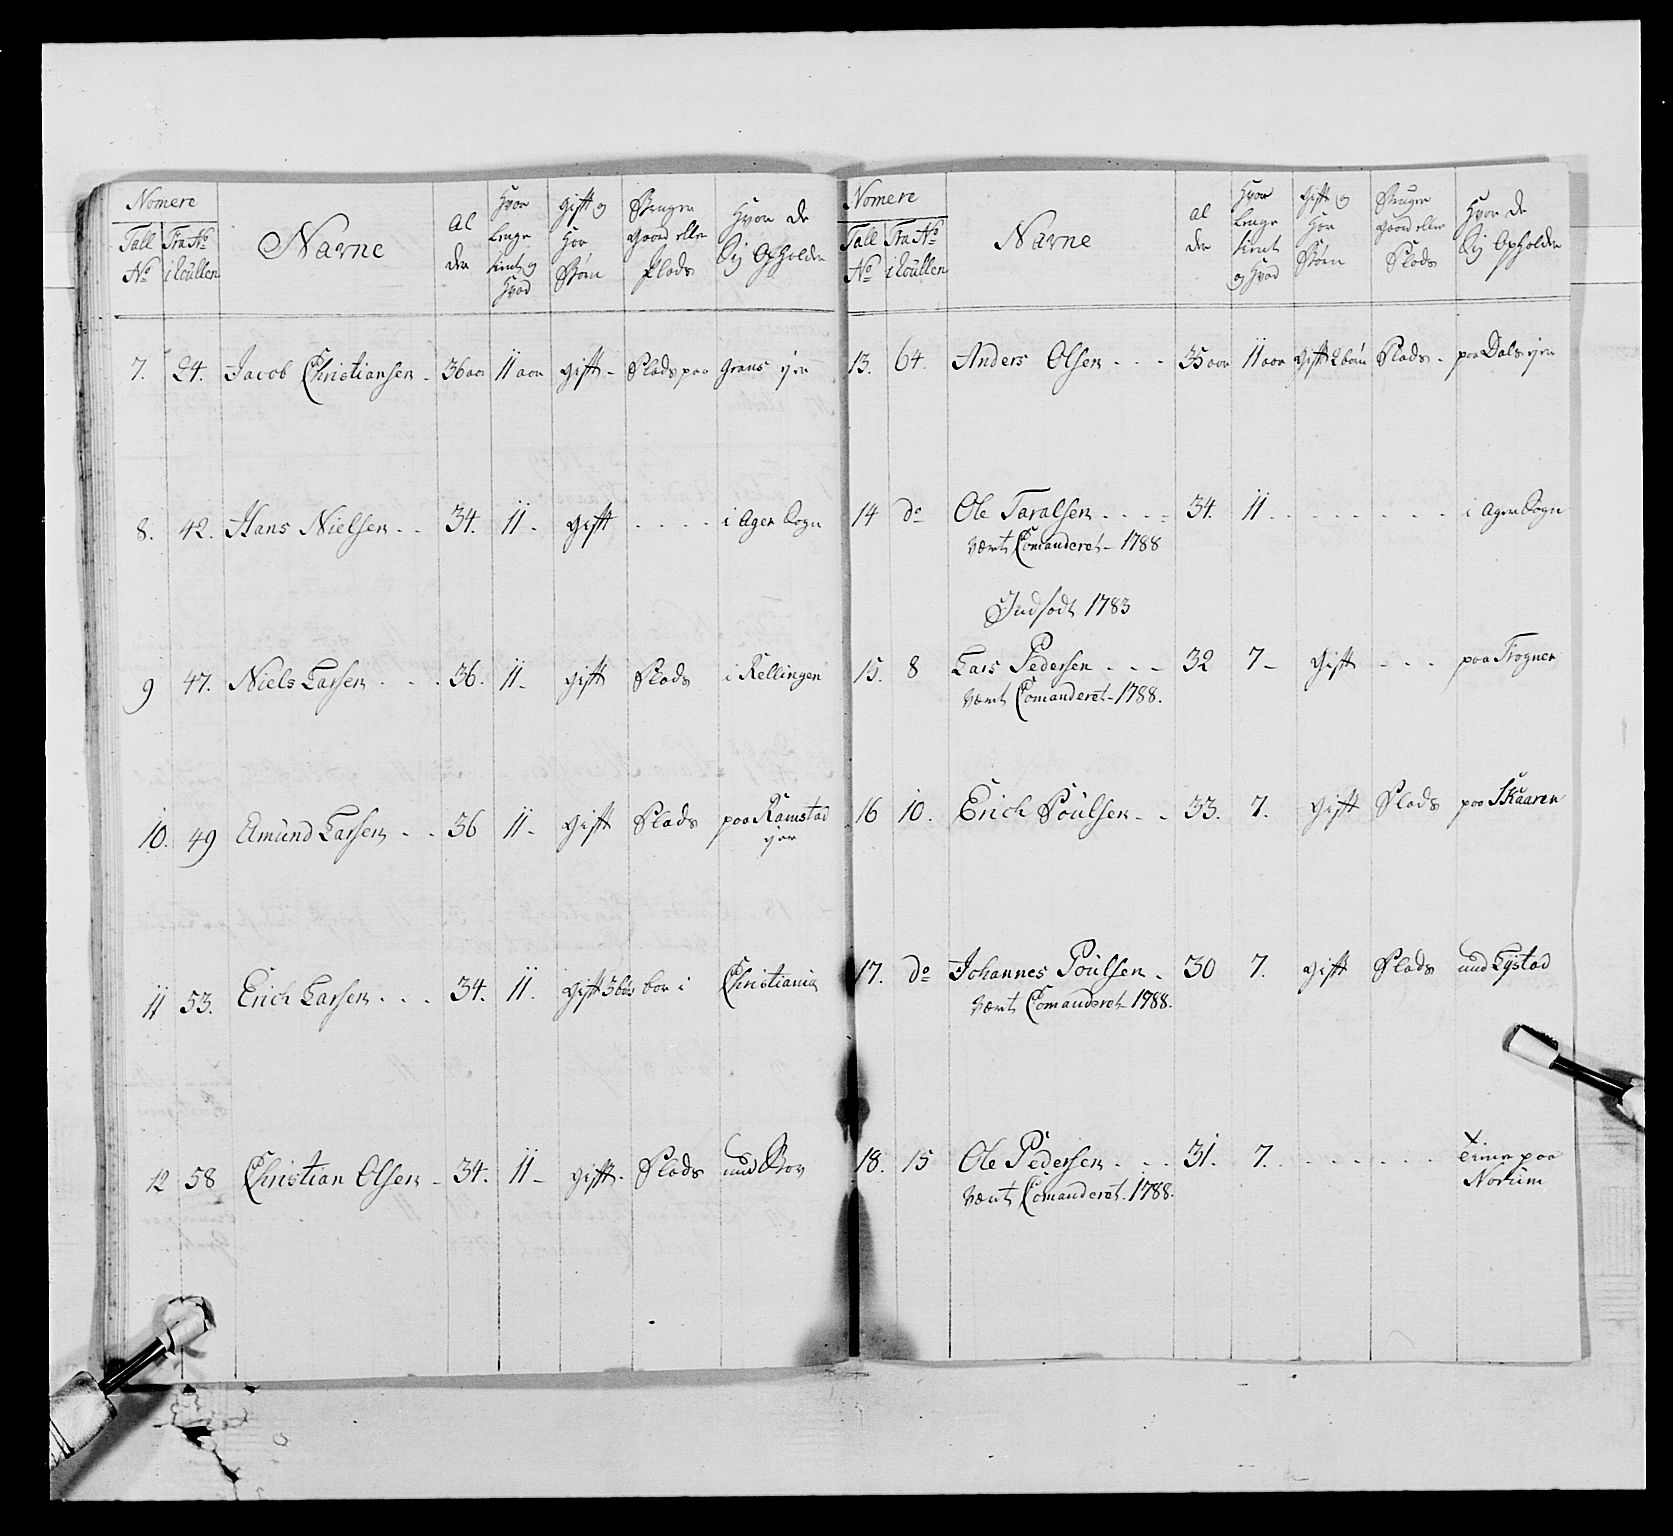 Nomere
Tall No | Fra No i Roullen | Navne | Al der | Hvor lenge tient og Hvad | Gift og Hor Børn | Bruger Gaard eller Plads | Hvor de Sig Opholder
7. 24. Jacob Christiansen - 36 aar 11 aar Gift - Plads paa Grans Ejer
8. 42. Hans Nielsen - - 34. 11 - Gift - - - - i Ager Sogn
9 47. Niels Larsen - - - 36. 11 - Gift Plads i Kellingen
10. 49 Amund Larsen - - 36 11 - Gift Plads paa Ramstad
Ejer
11 53. Erich Larsen - - - 34. 11. Gift 3 bør bor i Christiania
12 58 Christian Olsen - 34. 11 - Gift - Plads und Boy
Nomere
Tall No | Fra No i Roullen | Navne | Al der | Hvor lenge tient og Hvad | Gift og Hor Børn | Bruger Gaard eller Plads | Hvor de Sig Opholder
13. 64. Anders Olsen - - - 35 aar 11 aar Gift 2 børn Plads - paa Dals Ejer
14 do Ole Taralsen - - - - 34. 11 - - - - - - i Ager Sogn
vært Comanderet - 1788
Indsodt 1783
15. 8 Lars Pedersen - - - 32 7 - Gift - - - paa Frogner
vært Comanderet - 1788.
16 10. Erich Poulsen - - 33. 7. Gift Plads paa Skaaren
17. do Johannes Poulsen - 30 7. Gift Plads und Lystad
vært Comanderet - 1788.
18. 15 Ole Pedersen - - - 31. 7. - - - - - - tiener paa
vært Comanderet. 1788. Norum